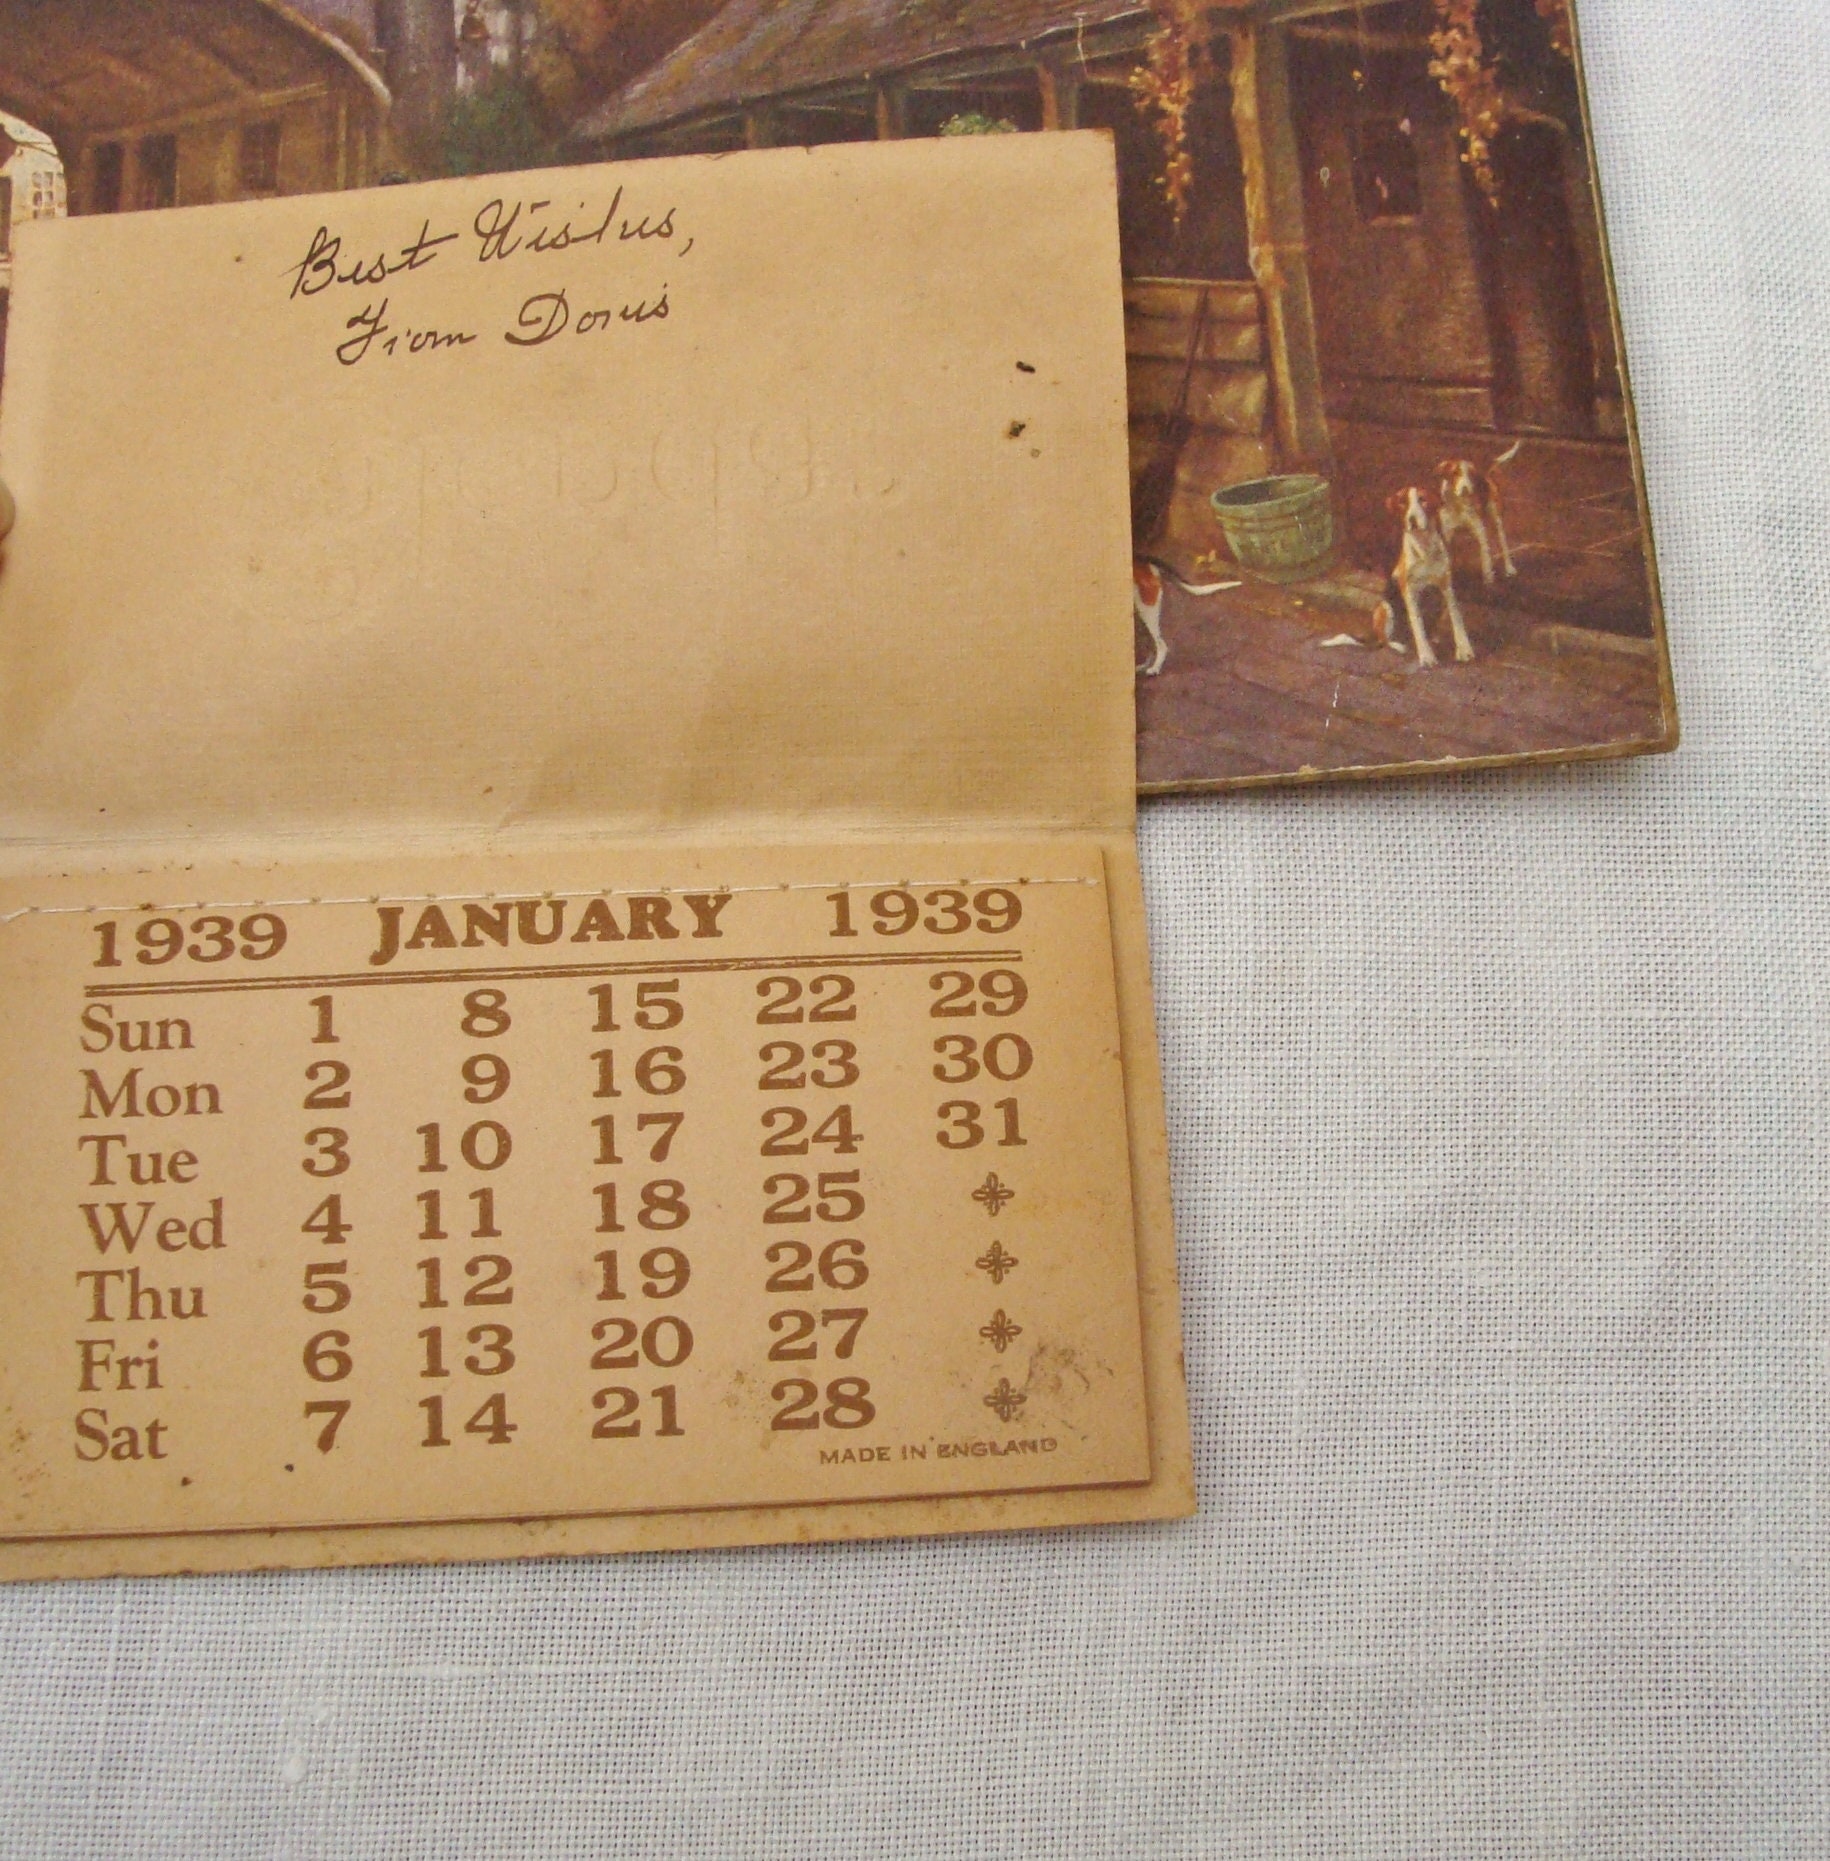 Best Wishes,
From Doris
1939 JANUARY 1939
Sun 1 8 15 22 29
Mon 2 9 16 23 30
Tue 3 10 17 24 31
Wed 4 11 18 25
Thu 5 12 19 26
Fri 6 13 20 27
Sat 7 14 21 28
MADE IN ENGLAND